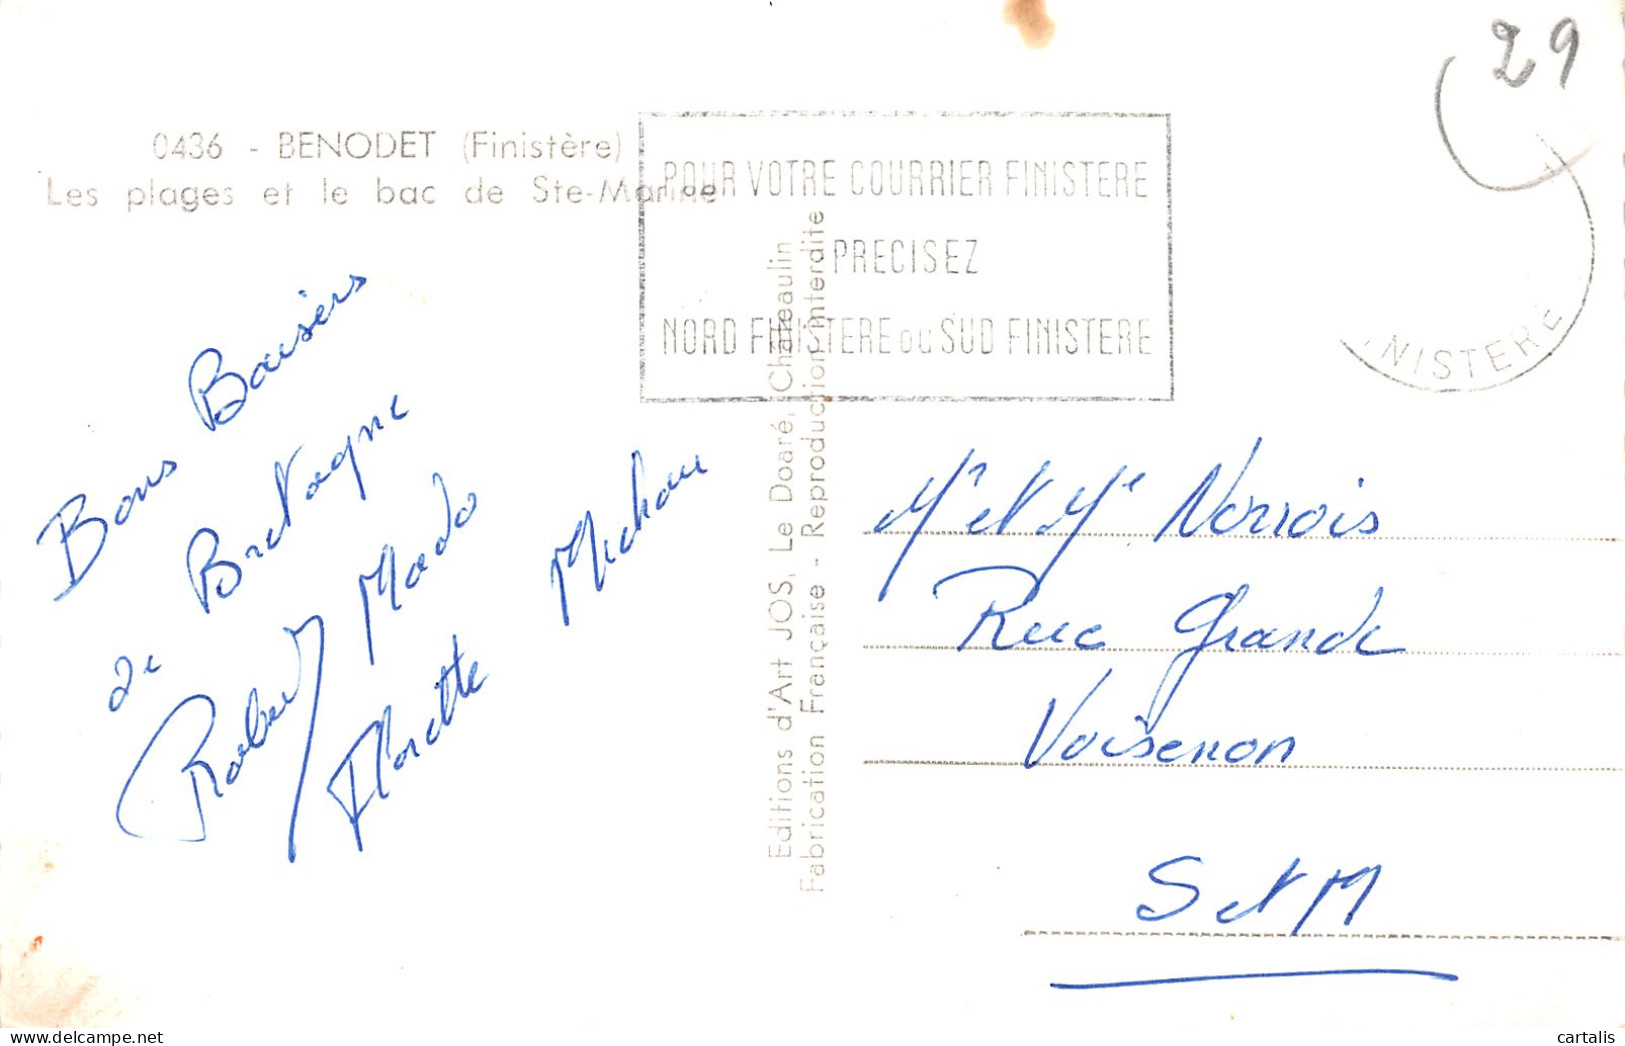 29
0436 - BENODET (Finistère)
Les plages et le bac de Ste-Marine
POUR VOTRE COURRIER FINISTERE
PRECISEZ
NORD FINISTERE OU SUD FINISTERE
NISTERE
Bons Baisers
de Bretagne
Robert Mado
Florette Michou
Editions d'Art JOS, Le Doaré, Chateaulin
Fabrication Française - Reproduction interdite
Mr et Me Norrois
Rue Grande
Voisenon
S et M
delcampe.net
cartalis